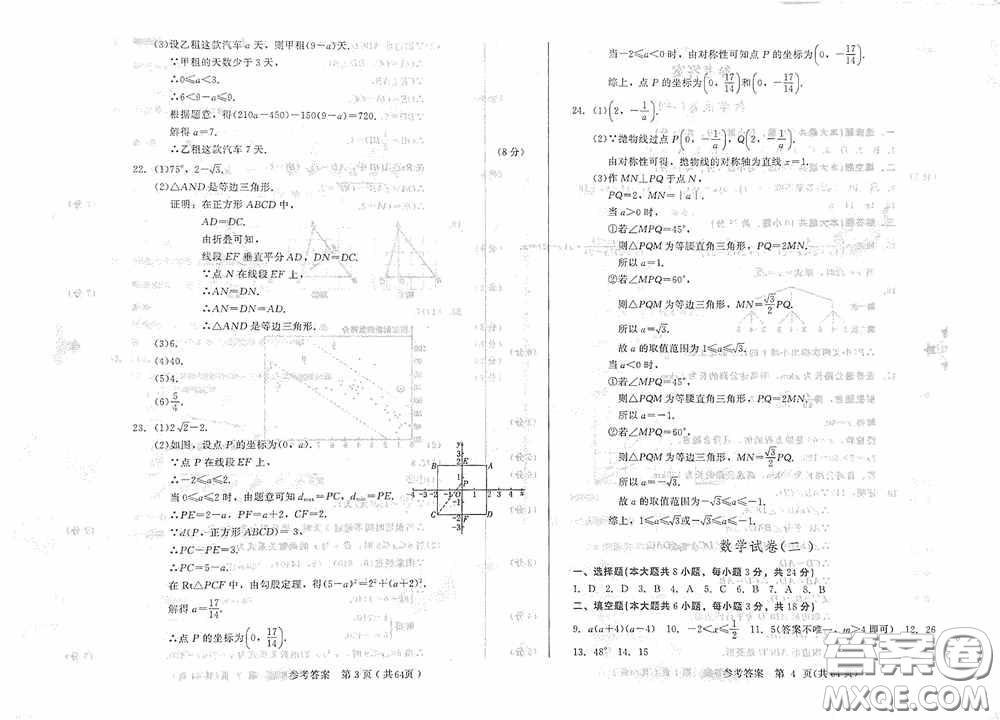 (3)设乙租这款汽车a天，则甲租(9-a)天.
∵甲租的天数少于3天，
∴0≤a<3.
∴6<9-a≤9.
根据题意，得(210a-450)-150(9-a)=720.
解得a=7.
∴乙租这款汽车7天. (8分)
22. (1)75°, 2-√3.
(2)△AND是等边三角形.
证明：在正方形ABCD中，
AD=DC.
由折叠可知，
线段EF垂直平分AD, DN=DC.
∵点N在线段EF上，
∴AN=DN.
∴AN=DN=AD.
∴△AND是等边三角形.
(3)6.
(4)40.
(5)4.
(6)5/4.
23. (1)2√2-2.
(2)如图，设点P的坐标为(0, a).
∵点P在线段EF上，
∴-2≤a≤2.
当0≤a≤2时，由题意可知d_max=PC, d_min=PE.
∴PE=2-a, PF=a+2, CF=2.
∵d(P, 正方形ABCD)=3,
∴PC-PE=3.
∴PC=5-a.
在Rt△PCF中，由勾股定理，得(5-a)²=2²+(a+2)².
解得a=17/14.
∴点P的坐标为(0, 17/14).
参考答案 第3页(共64页)
当-2≤a<0时，由对称性可知点P的坐标为(0, -17/14).
综上，点P的坐标为(0, 17/14)和(0, -17/14).
24. (1)(2, -1/a).
(2)∵抛物线过点P(0, -1/a), Q(2, -1/a).
由对称性可得，抛物线的对称轴为直线x=1.
(3)作MN⊥PQ于点N,
PQ=2, MN=|a|.
当a>0时，
①若∠MPQ=45°,
则△PQM为等腰直角三角形，PQ=2MN.
所以a=1.
②若∠MPQ=60°,
则△PQM为等边三角形，MN=√3/2PQ.
所以a=√3.
故a的取值范围为1≤a≤√3.
当a<0时，
①若∠MPQ=45°,
则△PQM为等腰直角三角形，PQ=2MN.
所以a=-1.
②若∠MPQ=60°,
则△PQM为等边三角形，MN=√3/2PQ.
所以a=-√3.
故a的取值范围为-√3≤a≤-1.
综上，1≤a≤√3或-√3≤a≤-1.
数学试卷(二)
一、选择题(本大题共8小题，每小题3分，共24分)
1. D 2. D 3. D 4. A 5. C 6. B 7. A 8. B
二、填空题(本大题共6小题，每小题3分，共18分)
9. a(a+4)(a-4) 10. -2<x≤1/2 11. 5(答案不唯一，m≥4即可) 12. 26
13. 48° 14. 15
参考答案 第4页(共64页)
答案圈
MXQE.COM